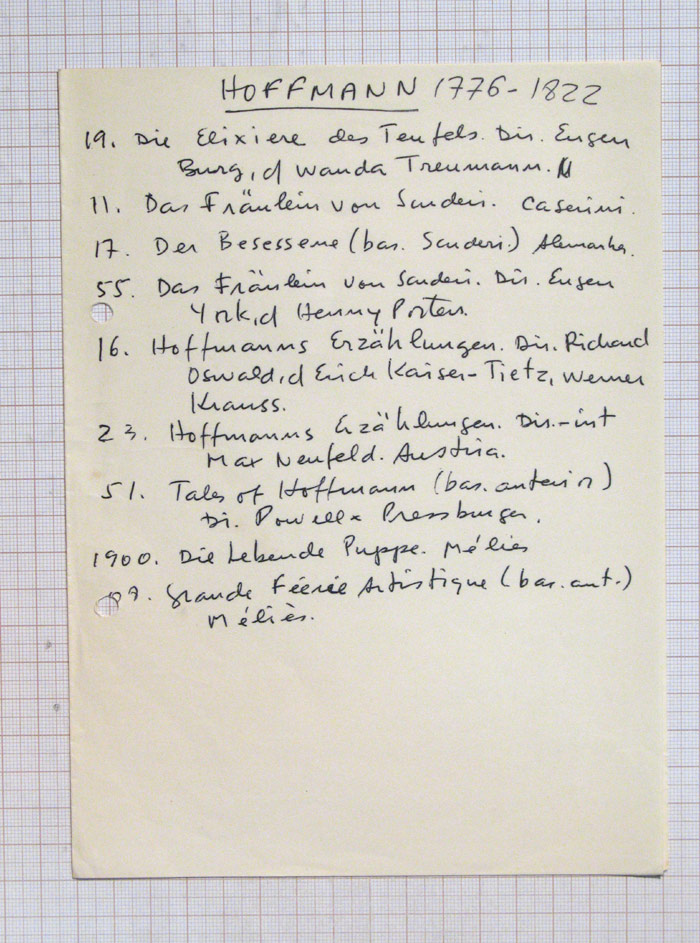 HOFFMANN 1776-1822
19. Die Elixiere des Teufels. Dir. Eugen
Burg, d Wanda Treumann.
11. Das Fräulein von Scuderi. Caserini.
17. Der Besessene (bas. Scuderi.) Alemanha.
55. Das Fräulein von Scuderi. Dir. Eugen
York, d Henny Porten.
16. Hoffmanns Erzählungen. Dir. Richard
Oswald, d Erich Kaiser-Tietz, Werner
Krauss.
23. Hoffmanns Erzählungen. Dir.-int
Max Neufeld. Austria.
51. Tales of Hoffmann (bas. anterior)
Di. Powell x Pressburger.
1900. Die Lebende Puppe. Méliès
Grande Féerie Artistique (bas. ant.)
Méliès.